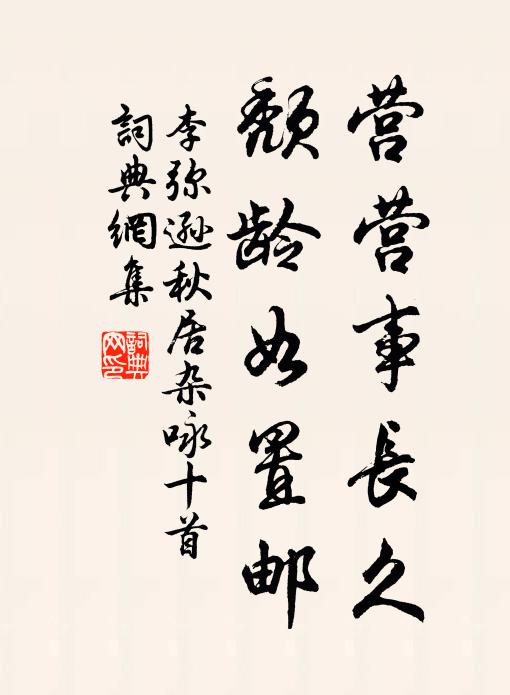 营营事長久
颓龄如置邮
李弥逊秋居杂咏十首
詞典網集
詞典网印